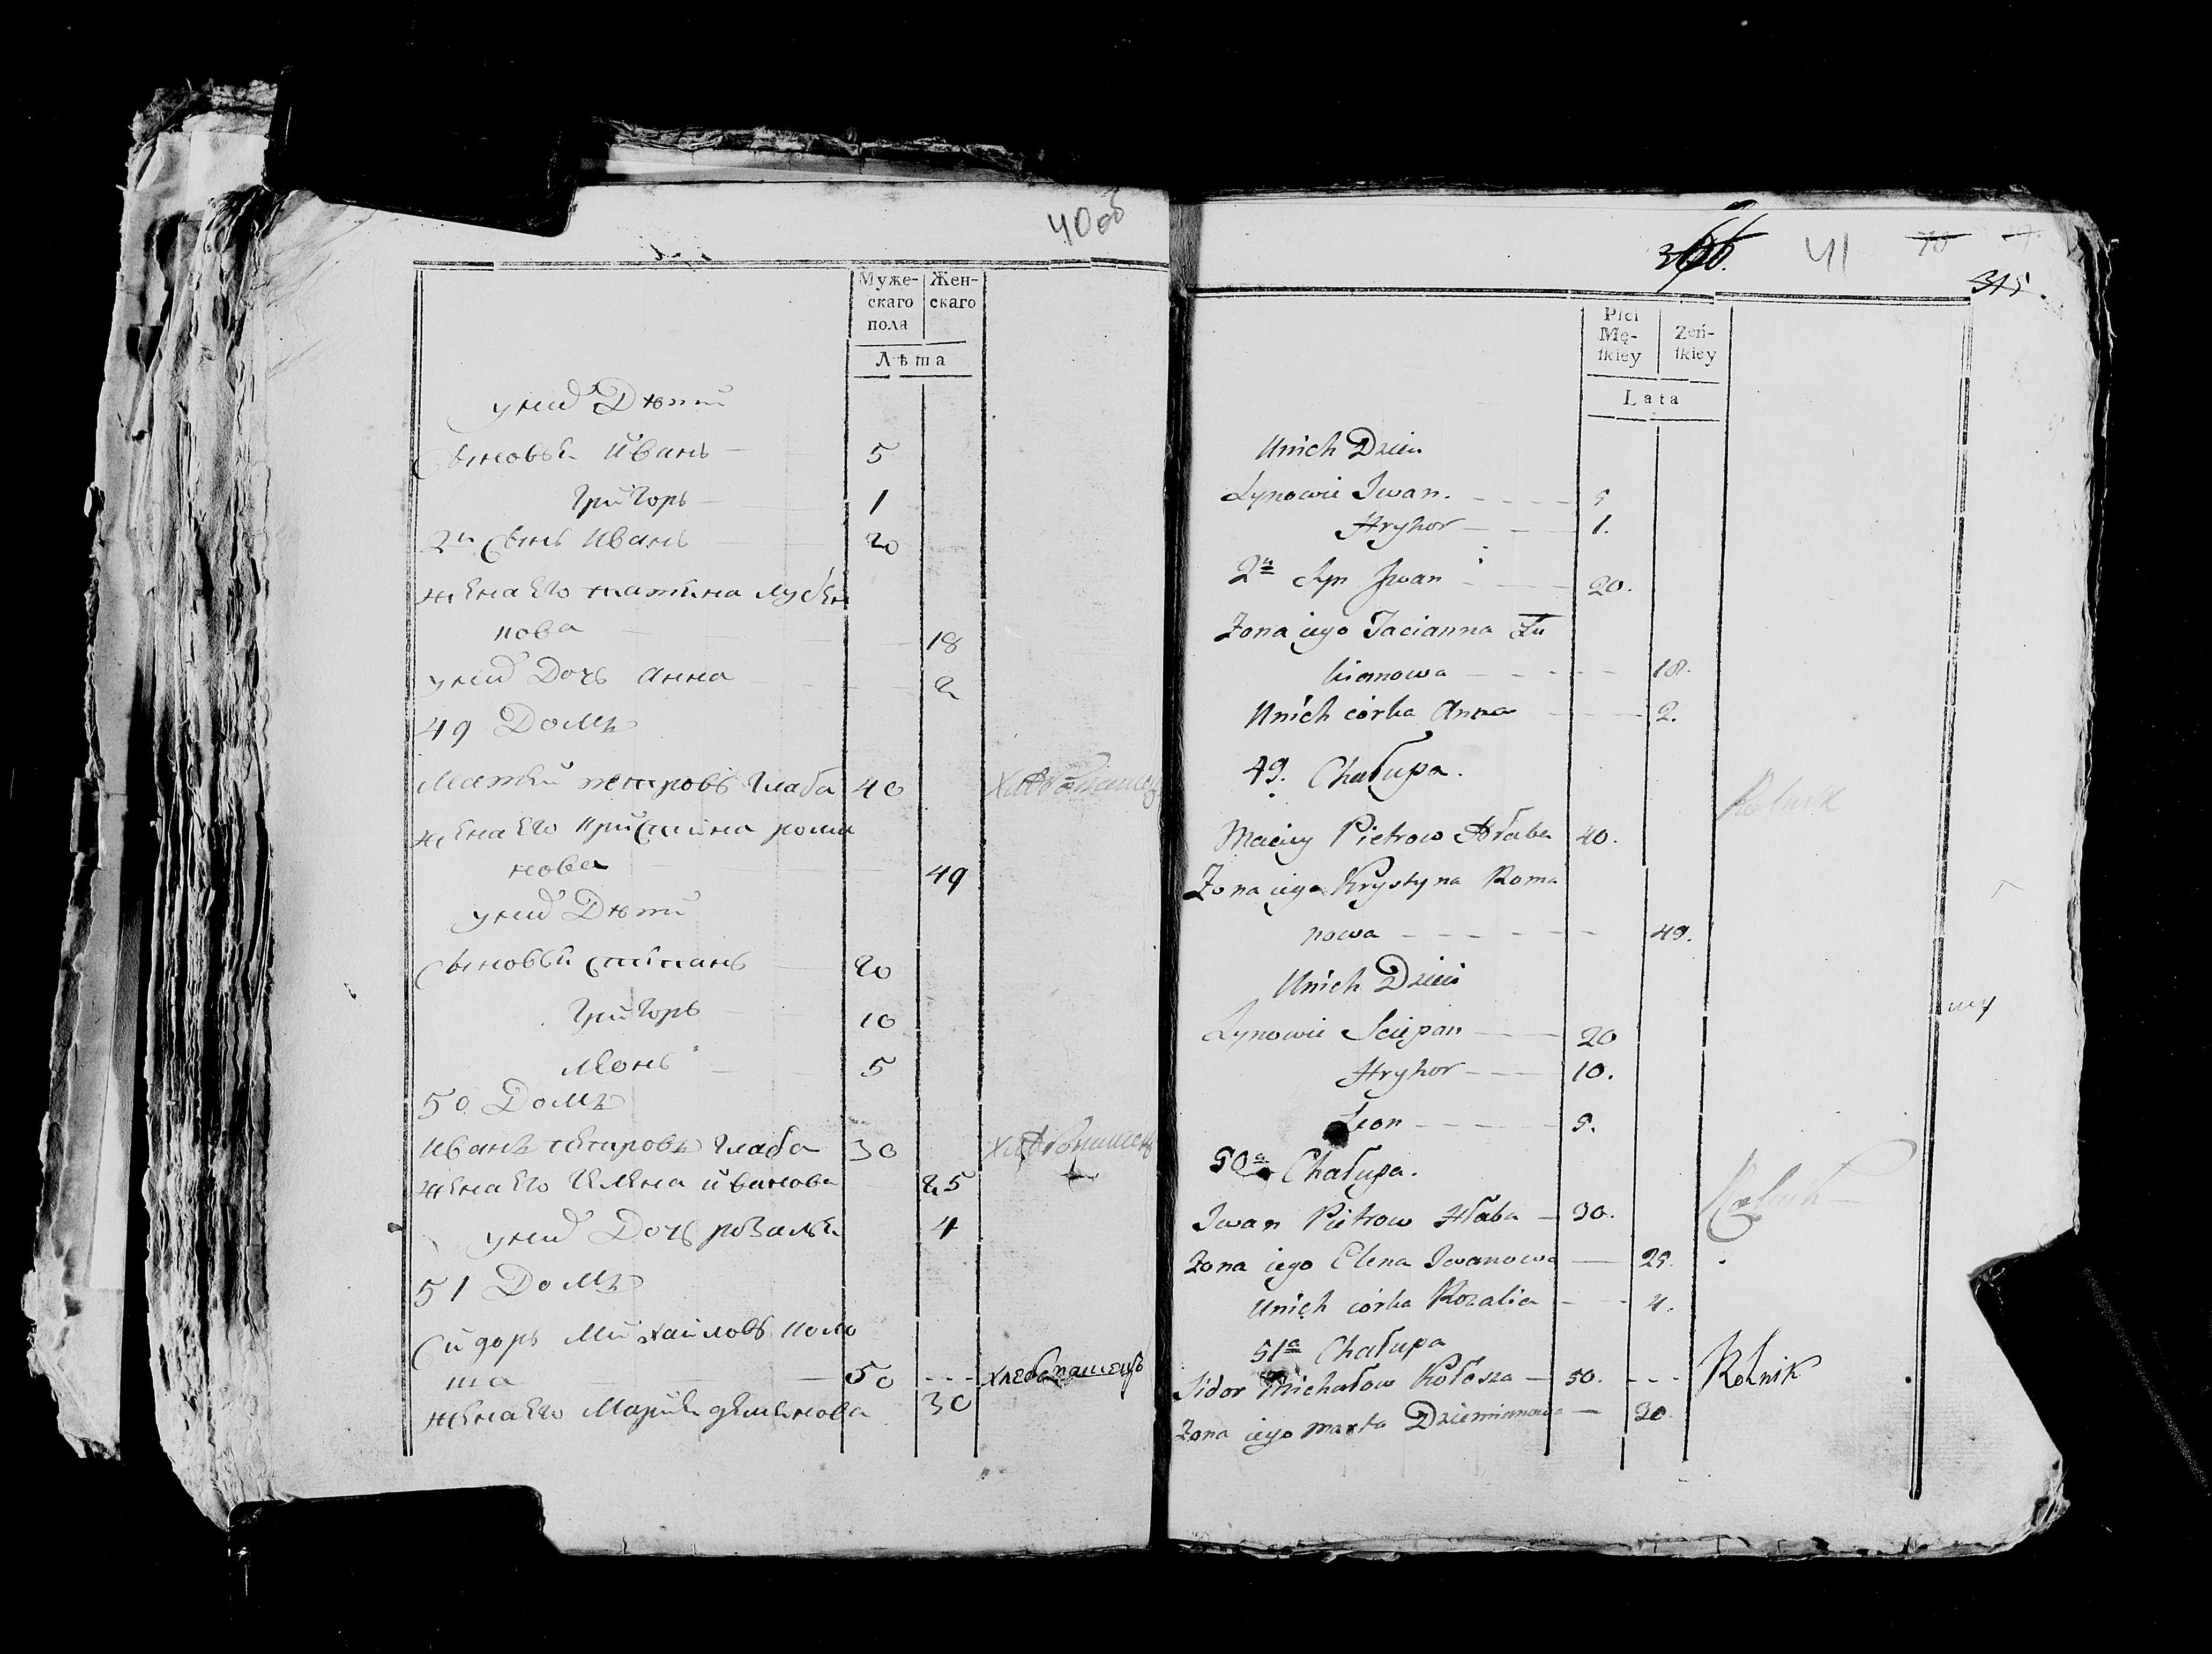 40об
Муже- Жен-
скаго скаго
пола
Лѣта
у них Дѣти
Сыновья Иванъ 5
Григоръ 1
2й Сынъ Иванъ 20
жена Его татяна Лукья
нова 18
у них Дочь Анна 2
49 Домъ
Матей петровъ Глаба 40 Хлебопашецъ
жена Его Кристина рома
нова 49
у них Дѣти
Сыновья степанъ 20
Григоръ 10
Леонъ 5
50 Домъ
Иванъ петровъ Глаба 30 Хлебопашецъ
жена Его Гелена иванова 25
у них Дочь розалья 4
51 Домъ
Сидоръ Михайловъ Коло
ша 50 --- хлебопашецъ
жена Его Марья демянова 30
41 70
315.
Plci
Mę- Zeń-
ſkiey ſkiey
Lata
Unich Dzieci
Synowie Iwan. 5
Hryhor 1.
2й Syn Iwan 20.
Zona iego Tacianna Łu
kianowa 18.
Unich córka Anna 2.
49. Chałupa.
Rolnik
Maciey Pietrow Hłaba 40.
Zona iego Krystyna Roma
nowa 49.
Unich Dzieci
Synowie Sciepan 20
Hryhor 10.
Leon 5.
50a Chałupa.
Rolnik
Iwan Pietrow Hłaba 30.
Zona iego Elena Iwanowa 25.
Unich córka Rozalia 4.
51a Chałupa
Sidor Michałow Kołosza 50. --- Rolnik
Zona iego Marta Dziemianowa 30